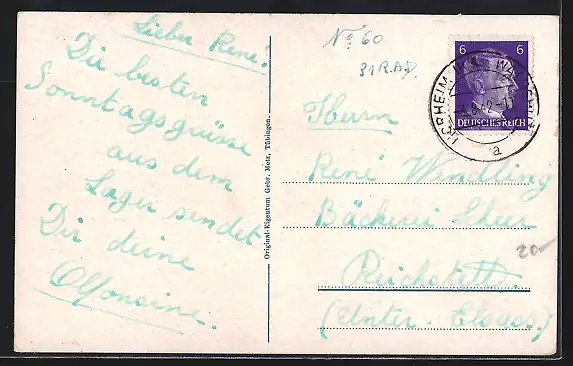 Lieber René!
Die besten
Sonntagsgrüsse
aus dem
Lager sendet
Dir deine
Alfonsine.
Original-Eigentum Gebr. Metz, Tübingen.
No 60
31 RAD.
6 6
DEUTSCHES REICH
a
Herrn
René Wendling
Bäckerei Scheer
20
Reichstett
(Unter-Elsass.)